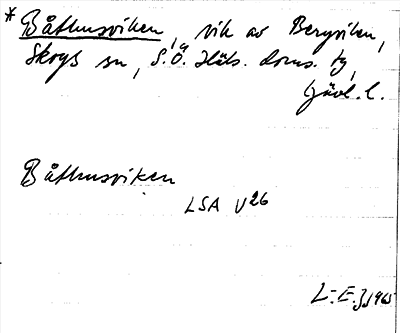 * Båthusviken, vik av Bergviken,
Skogs sn, S.Ö. Häls. doms. tg,
Gävl. l.
Båthusviken
LSA V26
L-E.J. 1965